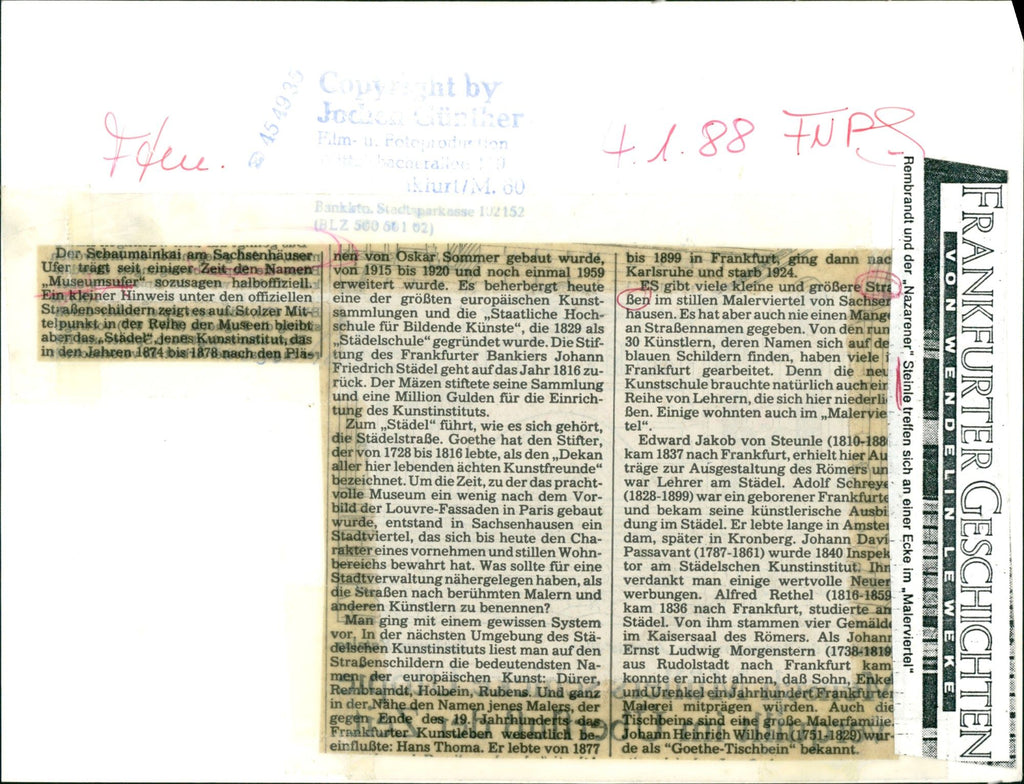 Copyright by
Jochen Günther
Film- u. Fotoproduktion
/M. 60
Bankkto. Stadtsparkasse 102152
(BLZ 500 501 02)
4.1.88 FNP
FRANKFURTER GESCHICHTEN
VON WENDELIN LEWEKE
Rembrandt und der „Nazarener“ Steinle treffen sich an einer Ecke im „Malerviertel“
Der Schaumainkai am Sachsenhäuser
Ufer trägt seit einiger Zeit den Namen
„Museumsufer“ sozusagen halboffiziell.
Ein kleiner Hinweis unter den offiziellen
Straßenschildern zeigt es auf. Stolzer Mit-
telpunkt in der Reihe der Museen bleibt
aber das „Städel“, jenes Kunstinstitut, das
in den Jahren 1874 bis 1878 nach den Plä-
nen von Oskar Sommer gebaut wurde,
von 1915 bis 1920 und noch einmal 1959
erweitert wurde. Es beherbergt heute
eine der größten europäischen Kunst-
sammlungen und die „Staatliche Hoch-
schule für Bildende Künste“, die 1829 als
„Städelschule“ gegründet wurde. Die Stif-
tung des Frankfurter Bankiers Johann
Friedrich Städel geht auf das Jahr 1816 zu-
rück. Der Mäzen stiftete seine Sammlung
und eine Million Gulden für die Einrich-
tung des Kunstinstituts.
Zum „Städel“ führt, wie es sich gehört,
die Städelstraße. Goethe hat den Stifter,
der von 1728 bis 1816 lebte, als den „Dekan
aller hier lebenden ächten Kunstfreunde“
bezeichnet. Um die Zeit, zu der das pracht-
volle Museum ein wenig nach dem Vor-
bild der Louvre-Fassaden in Paris gebaut
wurde, entstand in Sachsenhausen ein
Stadtviertel, das sich bis heute den Cha-
rakter eines vornehmen und stillen Wohn-
bereichs bewahrt hat. Was sollte für eine
Stadtverwaltung nähergelegen haben, als
die Straßen nach berühmten Malern und
anderen Künstlern zu benennen?
Man ging mit einem gewissen System
vor. In der nächsten Umgebung des Stä-
delschen Kunstinstituts liest man auf den
Straßenschildern die bedeutendsten Na-
men der europäischen Kunst: Dürer,
Rembrandt, Holbein, Rubens. Und ganz
in der Nähe den Namen jenes Malers, der
gegen Ende des 19. Jahrhunderts das
Frankfurter Kunstleben wesentlich be-
einflußte: Hans Thoma. Er lebte von 1877
bis 1899 in Frankfurt, ging dann nac
Karlsruhe und starb 1924.
ES gibt viele kleine und größere Stra
ßen im stillen Malerviertel von Sachsen
hausen. Es hat aber auch nie einen Mange
an Straßennamen gegeben. Von den run
30 Künstlern, deren Namen sich auf de
blauen Schildern finden, haben viele i
Frankfurt gearbeitet. Denn die neu
Kunstschule brauchte natürlich auch ein
Reihe von Lehrern, die sich hier niederli
ßen. Einige wohnten auch im „Malervie
tel“.
Edward Jakob von Steunle (1810-188
kam 1837 nach Frankfurt, erhielt hier Au
träge zur Ausgestaltung des Römers un
war Lehrer am Städel. Adolf Schreye
(1828-1899) war ein geborener Frankfurte
und bekam seine künstlerische Ausbi
dung im Städel. Er lebte lange in Amster
dam, später in Kronberg. Johann Davi
Passavant (1787-1861) wurde 1840 Inspek
tor am Städelschen Kunstinstitut. Ihn
verdankt man einige wertvolle Neuer
werbungen. Alfred Rethel (1816-1859
kam 1836 nach Frankfurt, studierte an
Städel. Von ihm stammen vier Gemäld
im Kaisersaal des Römers. Als Johann
Ernst Ludwig Morgenstern (1738-1819
aus Rudolstadt nach Frankfurt kam
konnte er nicht ahnen, daß Sohn, Enkel
und Urenkel ein Jahrhundert Frankfurter
Malerei mitprägen würden. Auch die
Tischbeins sind eine große Malerfamilie.
Johann Heinrich Wilhelm (1751-1829) wur-
de als "Goethe-Tischbein" bekannt.